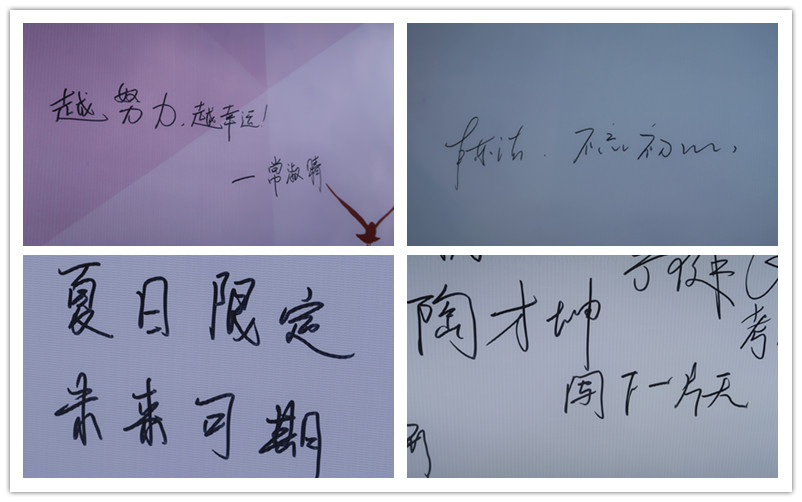 越努力,越幸运!
—常淑晴
不忘初心,
夏日限定
未来可期
陶才坤
考
闯下一片天